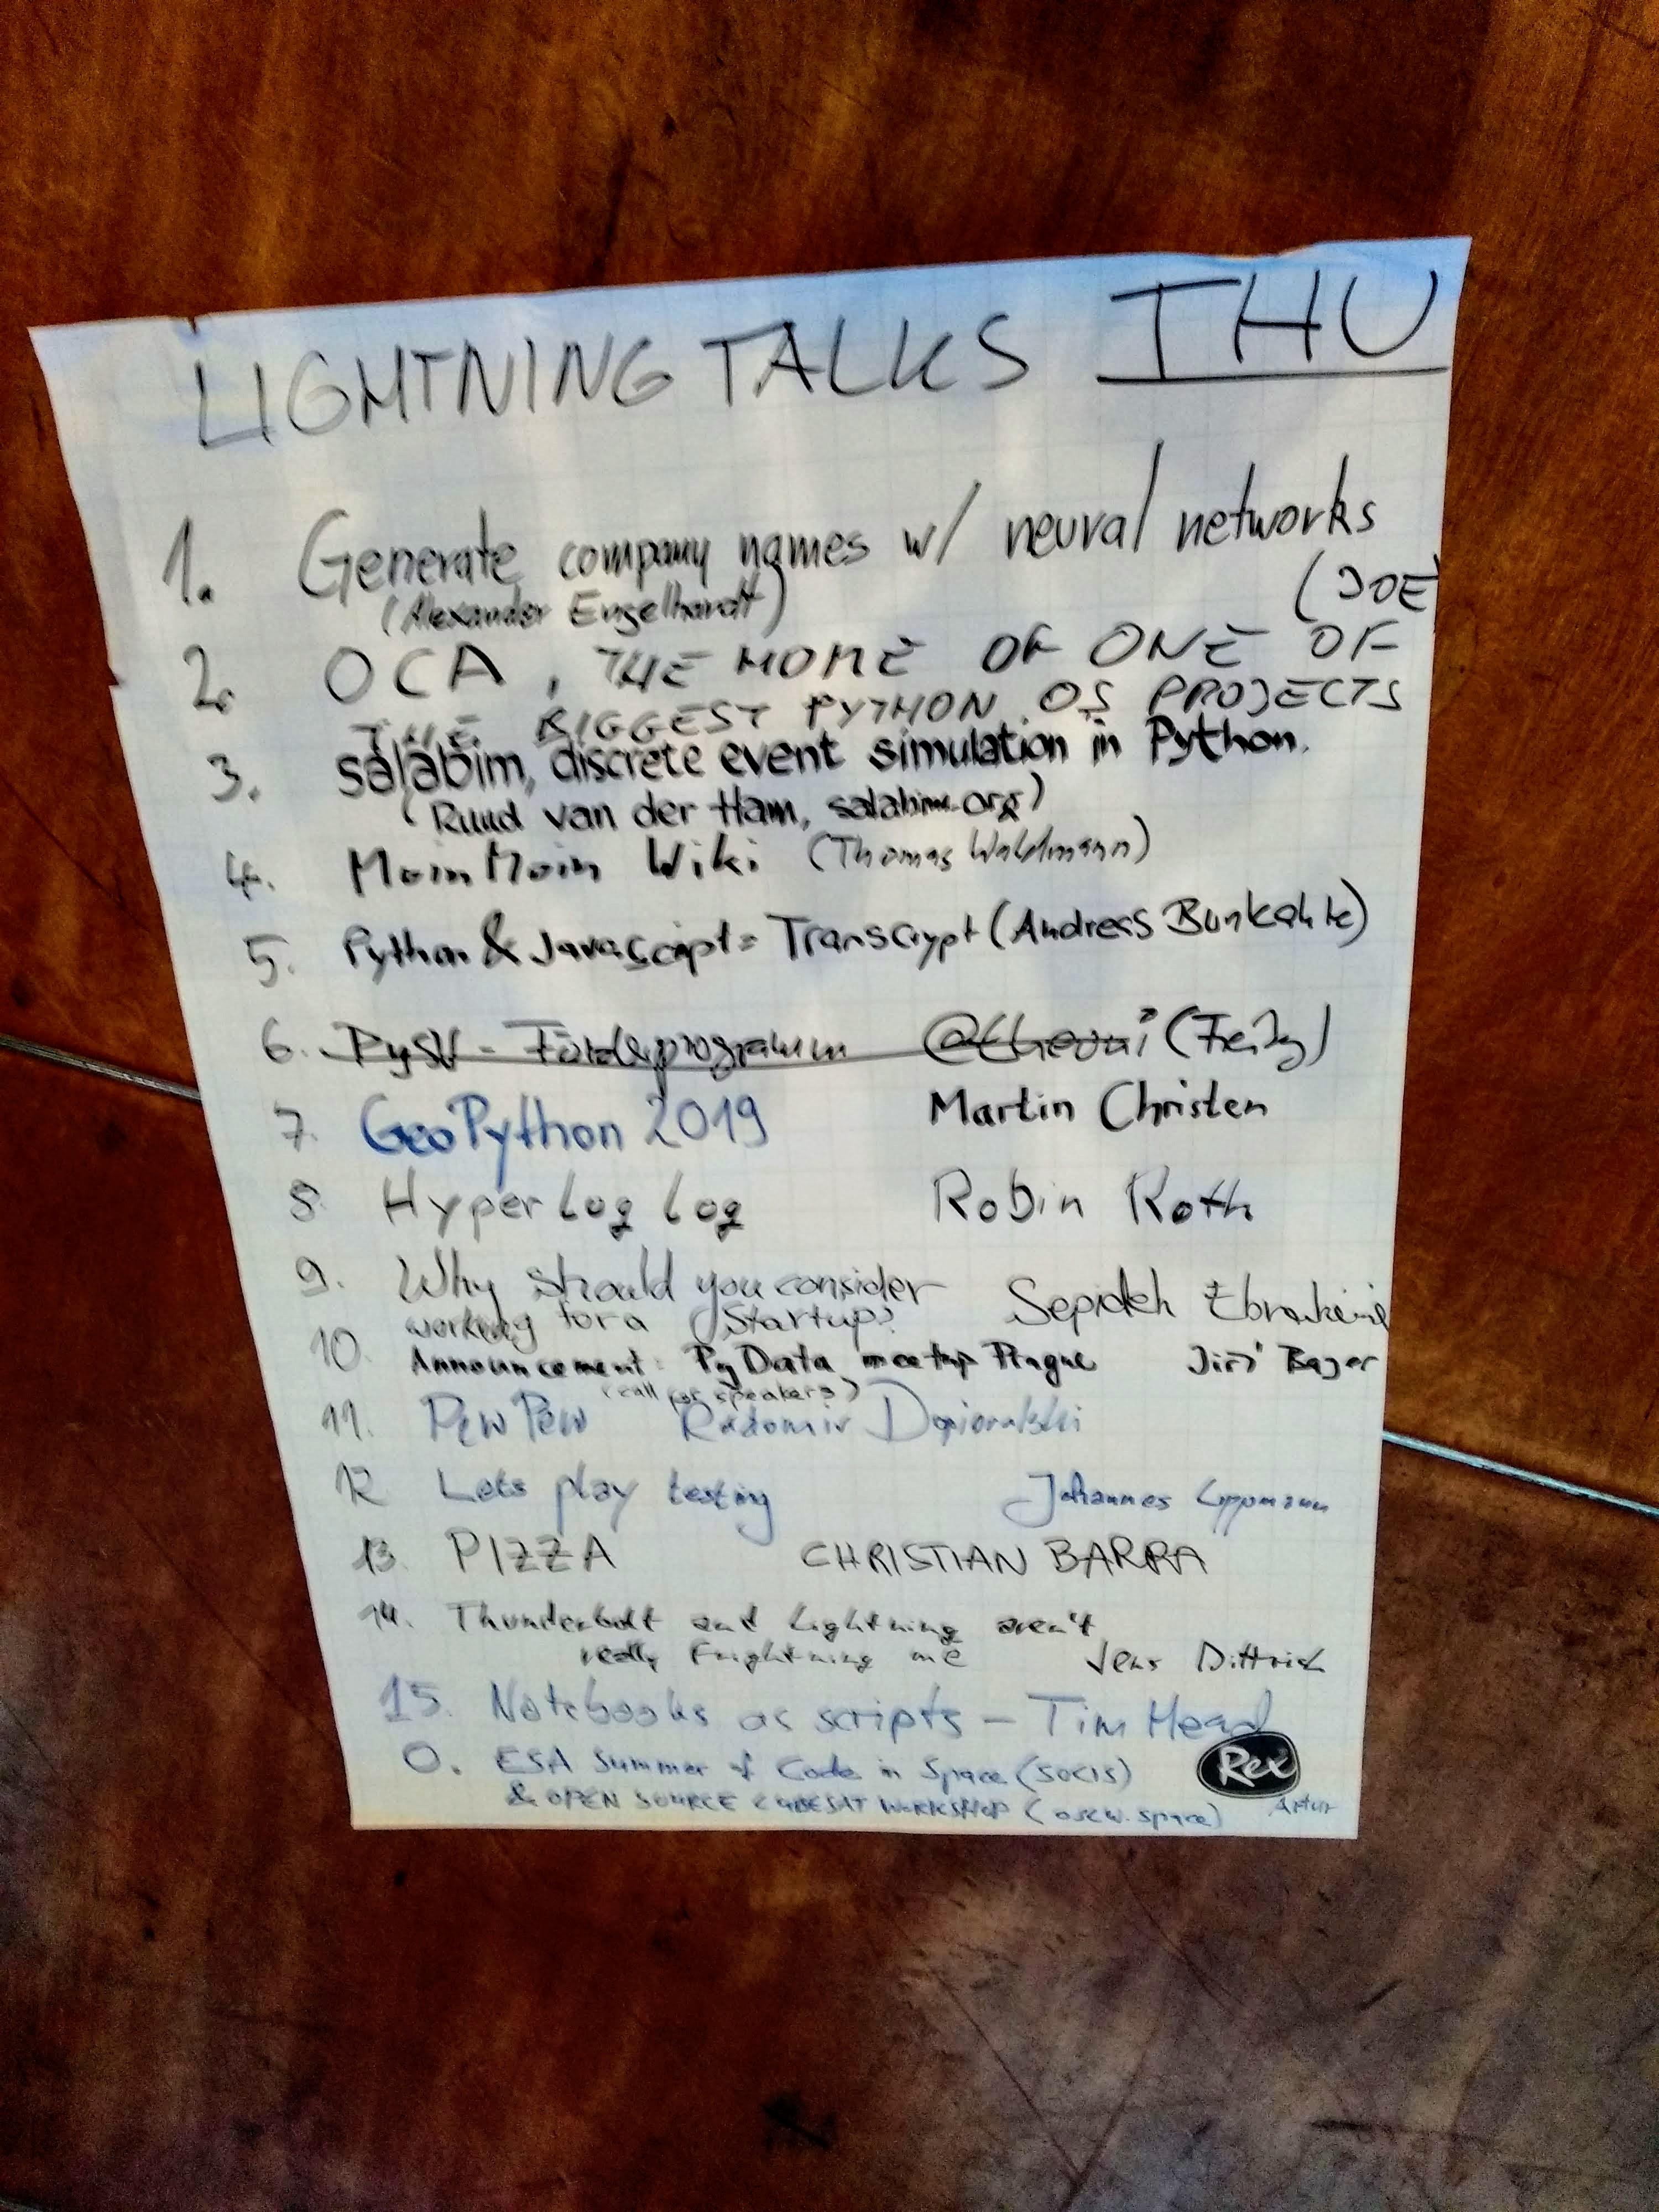 LIGHTNING TALKS THU
1. Generate company names w/ neural networks
(Alexander Engelhardt)
(JOE)
2. OCA, THE HOME OF ONE OF
THE BIGGEST PYTHON OS PROJECTS
3. salabim, discrete event simulation in Python.
(Ruud van der Ham, salabim.org)
4. MoinMoin Wiki (Thomas Waldmann)
5. Python & Javascript = Transcrypt (Andreas Bunkahle)
6. PySV - Förderprogramm
7. GeoPython 2019 Martin Christen
8. HyperLogLog Robin Roth
9. Why should you consider Sepideh
working for a Startup?
10. Announcement: PyData meetup Prague Jiří Bajer
(call for speakers)
11. PewPew Radomir Dopieralski
12 Lets play testing Johannes Lippmann
13. PIZZA CHRISTIAN BARRA
14. Thunderbolt and Lightning aren't
really Frightning me Jens Dittrich
15. Notebooks as scripts - Tim Head
0. ESA Summer of Code in Space (SOCIS)
& OPEN SOURCE CUBESAT WORKSHOP (oscw.space) Artur
Rex